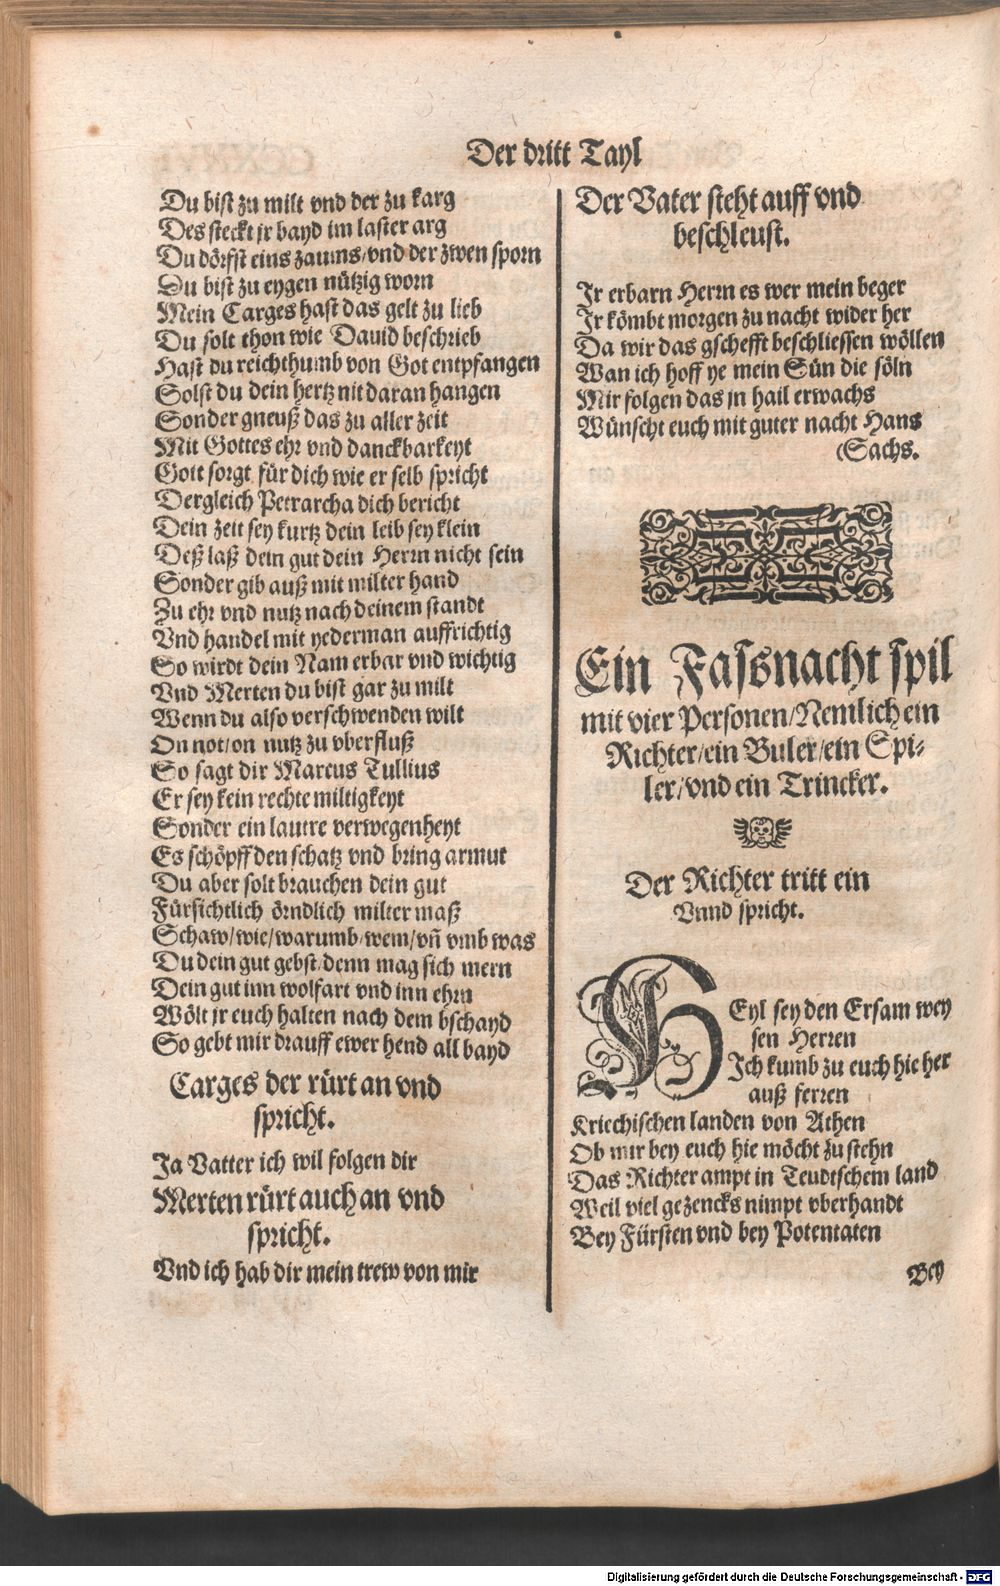 Der dritt Tayl
Du bist zu milt vnd der zu karg
Des steckt jr bayd im laster arg
Du dörfst eins zaums/vnd der zwen sporn
Du bist zu eygen nützig worn
Mein Carges hast das gelt zu lieb
Du solt thon wie Dauid beschrieb
Hast du reichthumb von Got entpfangen
Solst du dein hertz nit daran hangen
Sonder gneuß das zu aller zeit
Mit Gottes ehr vnd danckbarkeyt
Gott sorgt für dich wie er selb spricht
Dergleich Petrarcha dich bericht
Dein zeit sey kurtz dein leib sey klein
Deß laß dein gut dein Herrn nicht sein
Sonder gib auß mit milter hand
Zu ehr vnd nutz nach deinem standt
Vnd handel mit yederman auffrichtig
So wirdt dein Nam erbar vnd wichtig
Vnd Merten du bist gar zu milt
Wenn du also verschwenden wilt
On not/on nutz zu vberfluß
So sagt dir Marcus Tullius
Er sey kein rechte miltigkeyt
Sonder ein lautre verwegenheyt
Es schöpff den schatz vnd bring armut
Du aber solt brauchen dein gut
Fürsichtlich örndlich milter maß
Schaw/wie/warumb/wem/vñ vmb was
Du dein gut gebst/denn mag sich mern
Dein gut inn wolfart vnd inn ehrn
Wölt jr euch halten nach dem bschayd
So gebt mir drauff ewer hend all bayd
Carges der rürt an vnd
spricht.
Ja Vatter ich wil folgen dir
Merten rürt auch an vnd
spricht.
Vnd ich hab dir mein trew von mir
Der Vater steht auff vnd
beschleust.
Ir erbarn Herrn es wer mein beger
Ir kömbt morgen zu nacht wider her
Da wir das gschefft beschliessen wöllen
Wan ich hoff ye mein Sün die söln
Mir folgen das jn hail erwachs
Wünscht euch mit guter nacht Hans
(Sachs.
Ein Fassnacht spil
mit vier Personen/Nemlich ein
Richter/ein Buler/ein Spi-
ler/vnd ein Trincker.
Der Richter tritt ein
Vnnd spricht.
HEyl sey den Ersam wey
sen Herren
Ich kumb zu euch hie her
auß ferren
Kriechischen landen von Athen
Ob mir bey euch hie möcht zustehn
Das Richter ampt in Teudtschem land
Weil viel gezencks nimpt vberhandt
Bey Fürsten vnd bey Potentaten
Bey
Digitalisierung gefördert durch die Deutsche Forschungsgemeinschaft - DFG